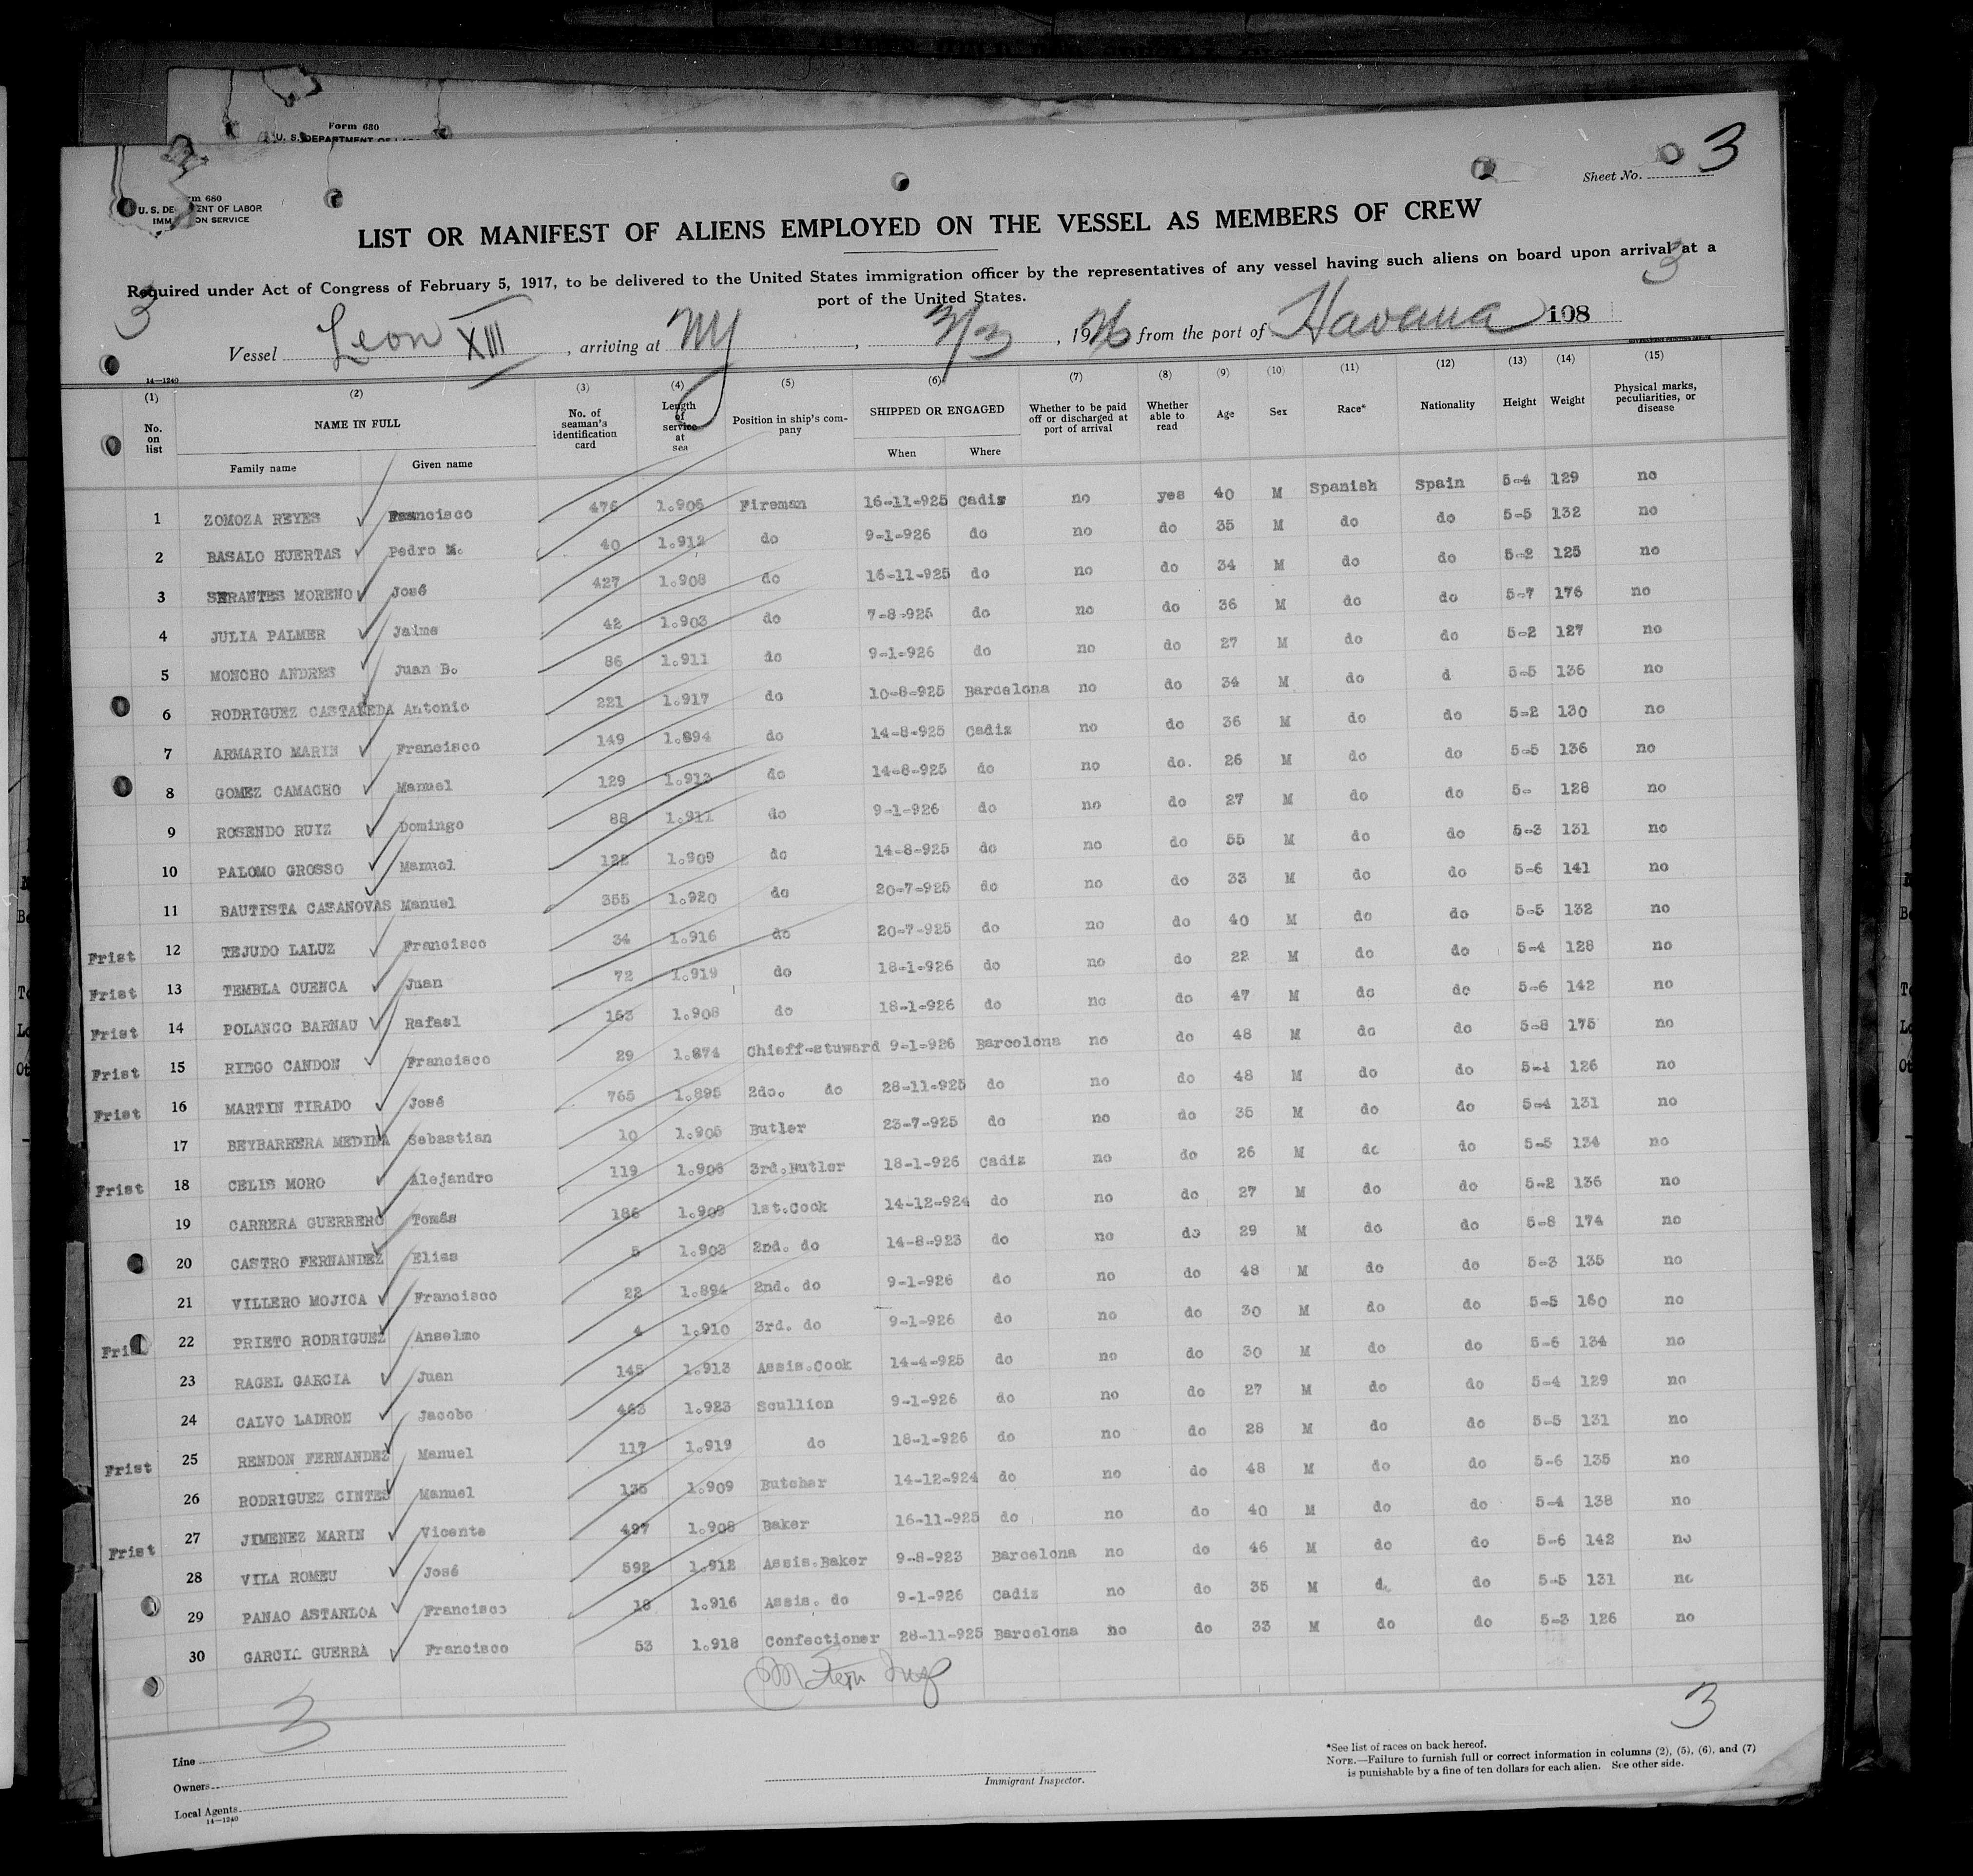 Form 680
U. S. DEPARTMENT OF LABOR
Sheet No. 3
Form 680
U. S. DEPARTMENT OF LABOR
IMMIGRATION SERVICE
LIST OR MANIFEST OF ALIENS EMPLOYED ON THE VESSEL AS MEMBERS OF CREW
Required under Act of Congress of February 5, 1917, to be delivered to the United States immigration officer by the representatives of any vessel having such aliens on board upon arrival at a
port of the United States.
3 3
Vessel Leon XIII, arriving at NY, 3/3, 1926 from the port of Havana 108
14—1240
(1) (2) (3) (4) (5) (6) (7) (8) (9) (10) (11) (12) (13) (14) (15)
No. on list NAME IN FULL No. of seaman's identification card Length of service at sea Position in ship's company SHIPPED OR ENGAGED Whether to be paid off or discharged at port of arrival Whether able to read Age Sex Race* Nationality Height Weight Physical marks, peculiarities, or disease
Family name Given name When Where
1 ZOMOZA REYES Francisco 476 1.906 Fireman 16-11-925 Cadiz no yes 40 M Spanish Spain 5-4 129 no
2 BASALO HUERTAS Pedro M. 40 1.912 do 9-1-926 do no do 35 M do do 5-5 132 no
3 SERANTES MORENO José 427 1.908 do 16-11-925 do no do 34 M do do 5-2 125 no
4 JULIA PALMER Jaime 42 1.903 do 7-8-925 do no do 36 M do do 5-7 176 no
5 MONCHO ANDRES Juan B. 86 1.911 do 9-1-926 do no do 27 M do do 5-2 127 no
6 RODRIGUEZ CASTAÑEDA Antonio 221 1.917 do 10-8-925 Barcelona no do 34 M do d 5-5 136 no
7 ARMARIO MARIN Francisco 149 1.894 do 14-8-925 Cadiz no do 36 M do do 5-2 130 no
8 GOMEZ CAMACHO Manuel 129 1.913 do 14-8-925 do no do. 26 M do do 5-5 136 no
9 ROSENDO RUIZ Domingo 88 1.911 do 9-1-926 do no do 27 M do do 5- 128 no
10 PALOMO GROSSO Manuel 122 1.909 do 14-8-925 do no do 55 M do do 5-3 131 no
11 BAUTISTA CASANOVAS Manuel 355 1.920 do 20-7-925 do no do 33 M do do 5-6 141 no
Frist 12 TEJUDO LALUZ Francisco 34 1.916 do 20-7-925 do no do 40 M do do 5-5 132 no
Frist 13 TEMBLA CUENCA Juan 72 1.919 do 18-1-926 do no do 22 M do do 5-4 128 no
Frist 14 POLANCO BARNAU Rafael 163 1.908 do 18-1-926 do no do 47 M do do 5-6 142 no
Frist 15 RIEGO CANDON Francisco 29 1.874 Chieff-stuward 9-1-926 Barcelona no do 48 M do do 5-8 175 no
Frist 16 MARTIN TIRADO José 765 1.895 2do. do 28-11-925 do no do 48 M do do 5-4 126 no
17 BEYBARRERA MEDINA Sebastian 10 1.906 Butler 23-7-925 do no do 35 M do do 5-4 131 no
Frist 18 CELIS MORO Alejandro 119 1.906 3rd.Butler 18-1-926 Cadiz no do 26 M do do 5-5 134 no
19 CARRERA GUERRERO Tomás 186 1.909 1st.Cook 14-12-924 do no do 27 M do do 5-2 136 no
20 CASTRO FERNANDEZ Elias 5 1.903 2nd. do 14-8-923 do no do 29 M do do 5-8 174 no
21 VILLERO MOJICA Francisco 22 1.894 2nd. do 9-1-926 do no do 48 M do do 5-3 135 no
Frist 22 PRIETO RODRIGUEZ Anselmo 4 1.910 3rd. do 9-1-926 do no do 30 M do do 5-5 160 no
23 RAGEL GARCIA Juan 145 1.913 Assis.Cook 14-4-925 do no do 30 M do do 5-6 134 no
24 CALVO LADRON Jacobo 463 1.923 Scullion 9-1-926 do no do 27 M do do 5-4 129 no
Frist 25 RENDON FERNANDEZ Manuel 117 1.919 do 18-1-926 do no do 28 M do do 5-5 131 no
26 RODRIGUEZ CINTES Manuel 135 1.909 Butcher 14-12-924 do no do 48 M do do 5-6 135 no
Frist 27 JIMENEZ MARIN Vicente 497 1.908 Baker 16-11-925 do no do 40 M do do 5-4 138 no
28 VILA ROMEU José 592 1.912 Assis.Baker 9-8-923 Barcelona no do 46 M do do 5-6 142 no
29 PANAO ASTARLOA Francisco 18 1.916 Assis. do 9-1-926 Cadiz no do 35 M do do 5-5 131 no
30 GARCIA GUERRA Francisco 53 1.918 Confectioner 28-11-925 Barcelona no do 33 M do do 5-3 126 no
3 3
Line
Owners
Local Agents
14—1240
Immigrant Inspector.
*See list of races on back hereof.
NOTE.—Failure to furnish full or correct information in columns (2), (5), (6), and (7)
is punishable by a fine of ten dollars for each alien. See other side.